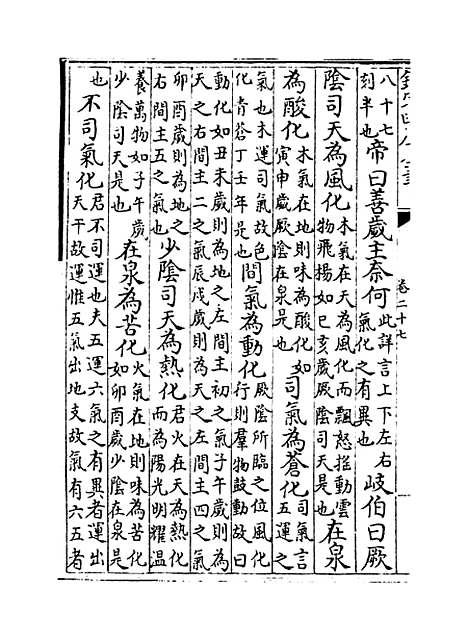 卷二十七
八十七
刻半也
帝曰善歲主奈何
此詳言上下左右
氣化之有異也
岐伯曰厥
陰司天為風化
木氣在天為風化而飄怒揺動雲
物飛揚如巳亥歲厥陰司天是也
在泉
為酸化
木氣在地則味為酸化如
寅申歲厥陰在泉是也
司氣為蒼化
司氣言
五運之
氣也木運司氣故色
化青蒼丁壬年是也
間氣為動化
厥陰所臨之位風化
行則羣物鼓動故曰
動化如丑未歲則為地之左間主初之氣子午歲則為
天之右間主二之氣辰戌歲則為天之左間主四之氣
卯酉歲則為地之
右間主五之氣也
少陰司天為熱化
君火在天為熱化
而為陽光明耀温
養萬物如子午歲
少陰司天是也
在泉為苦化
火氣在地則味為苦化
如卯酉歲少陰在泉是
也
不司氣化
君不司運也夫五運六氣之有異者運出
天干故運惟五氣出地支故氣有六五者